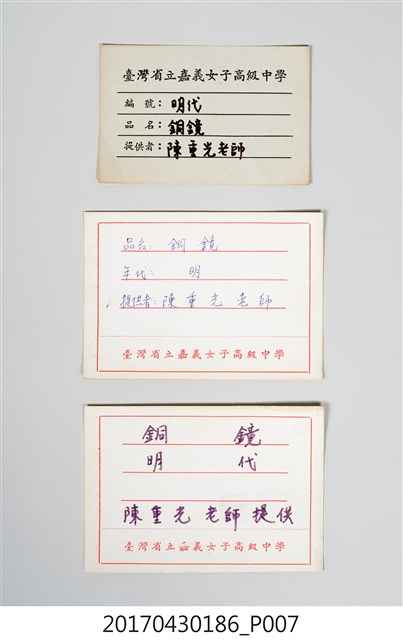 臺灣省立嘉義女子高級中學
編 號：明代
品 名：銅鏡
提供者：陳重光老師
品名：銅 鏡
年代：明
提供者：陳 重 光 老 師
臺灣省立嘉義女子高級中學
銅 鏡
明 代
陳 重 光 老師 提 供
臺灣省立嘉義女子高級中學
20170430186_P007